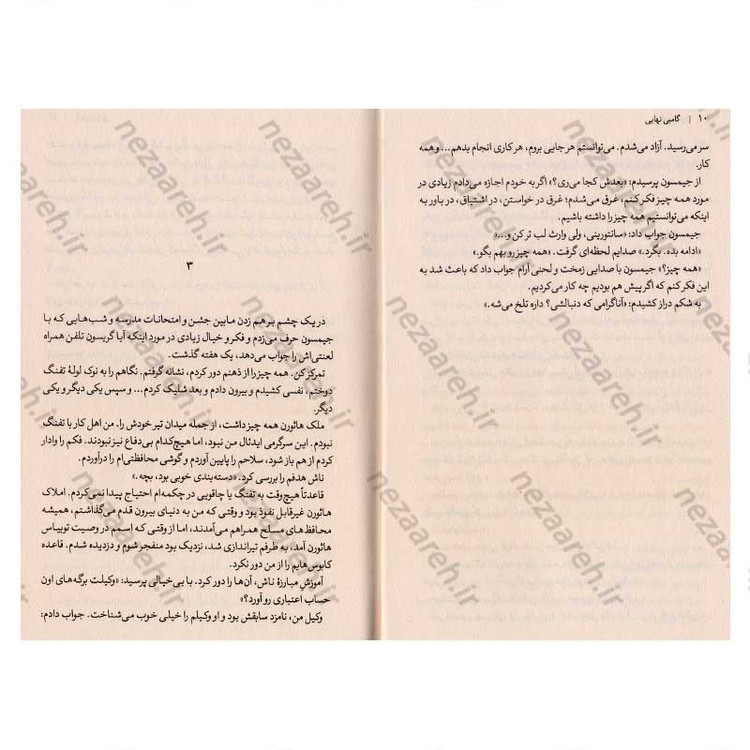 ۱۰ | گامبی نهایی
سر می‌رسید. آزاد می‌شدم. می‌توانستم هر جایی بروم، هر کاری انجام بدهم... و همه
کار.
از جیمسون پرسیدم: «بعدش کجا می‌ری؟» اگر به خودم اجازه می‌دادم زیادی در
مورد همه چیز فکر کنم، غرق می‌شدم؛ غرق در خواستن، در اشتیاق، در باور به
اینکه می‌توانستیم همه چیز را داشته باشیم.
جیمسون جواب داد: «سانتورینی، ولی وارث لب تر کن و...»
«ادامه بده. بگرد.» صدایم لحظه‌ای گرفت. «همه چیز رو بهم بگو.»
«همه چیز؟» جیمسون با صدایی زمخت و لحنی آرام جواب داد که باعث شد به
این فکر کنم که اگر پیش هم بودیم چه کار می‌کردیم.
به شکم دراز کشیدم: «آناگرامی که دنبالشی؟ داره تلخ می‌شه.»
۳
در یک چشم بر هم زدن مابین جشن و امتحانات مدرسه و شب‌هایی که با
جیمسون حرف می‌زدم و فکر و خیال زیادی در مورد اینکه آیا گریسون تلفن همراه
لعنتی‌اش را جواب می‌دهد، یک هفته گذشت.
تمرکز کن. همه چیز را از ذهنم دور کردم، نشانه گرفتم. نگاهم را به نوک لولهٔ تفنگ
دوختم، نفسی کشیدم و بیرون دادم و بعد شلیک کردم... و سپس یکی دیگر و یکی
دیگر.
ملک هاثورن همه چیز داشت، از جمله میدان تیر خودش را. من اهل کار با تفنگ
نبودم. این سرگرمی ایدئال من نبود، اما هیچ‌کدام بی‌دفاع نیز نبودند. فکم را وادار
کردم از هم باز شود، سلاحم را پایین آوردم و گوشی محافظتی‌ام را درآوردم.
ناش هدفم را بررسی کرد. «دسته‌بندی خوبی بود، بچه.»
قاعدتاً هیچ‌وقت به تفنگ یا چاقویی در چکمه‌ام احتیاج پیدا نمی‌کردم. املاک
هاثورن غیرقابل نفوذ بود و وقتی که من به دنیای بیرون قدم می‌گذاشتم، همیشه
محافظ‌های مسلح همراهم می‌آمدند، اما از وقتی که اسمم در وصیت توبیاس
هاثورن آمد، به طرفم تیراندازی شد، نزدیک بود منفجر شوم و دزدیده شدم. قاعده
کابوس‌هایم را از من دور نکرد.
آموزش مبارزهٔ ناش، آن‌ها را دور کرد. با بی‌خیالی پرسید: «وکیلت برگه‌های اون
حساب اعتباری رو آورد؟»
وکیل من، نامزد سابقش بود و او وکیلم را خیلی خوب می‌شناخت. جواب دادم:
nezaareh.ir